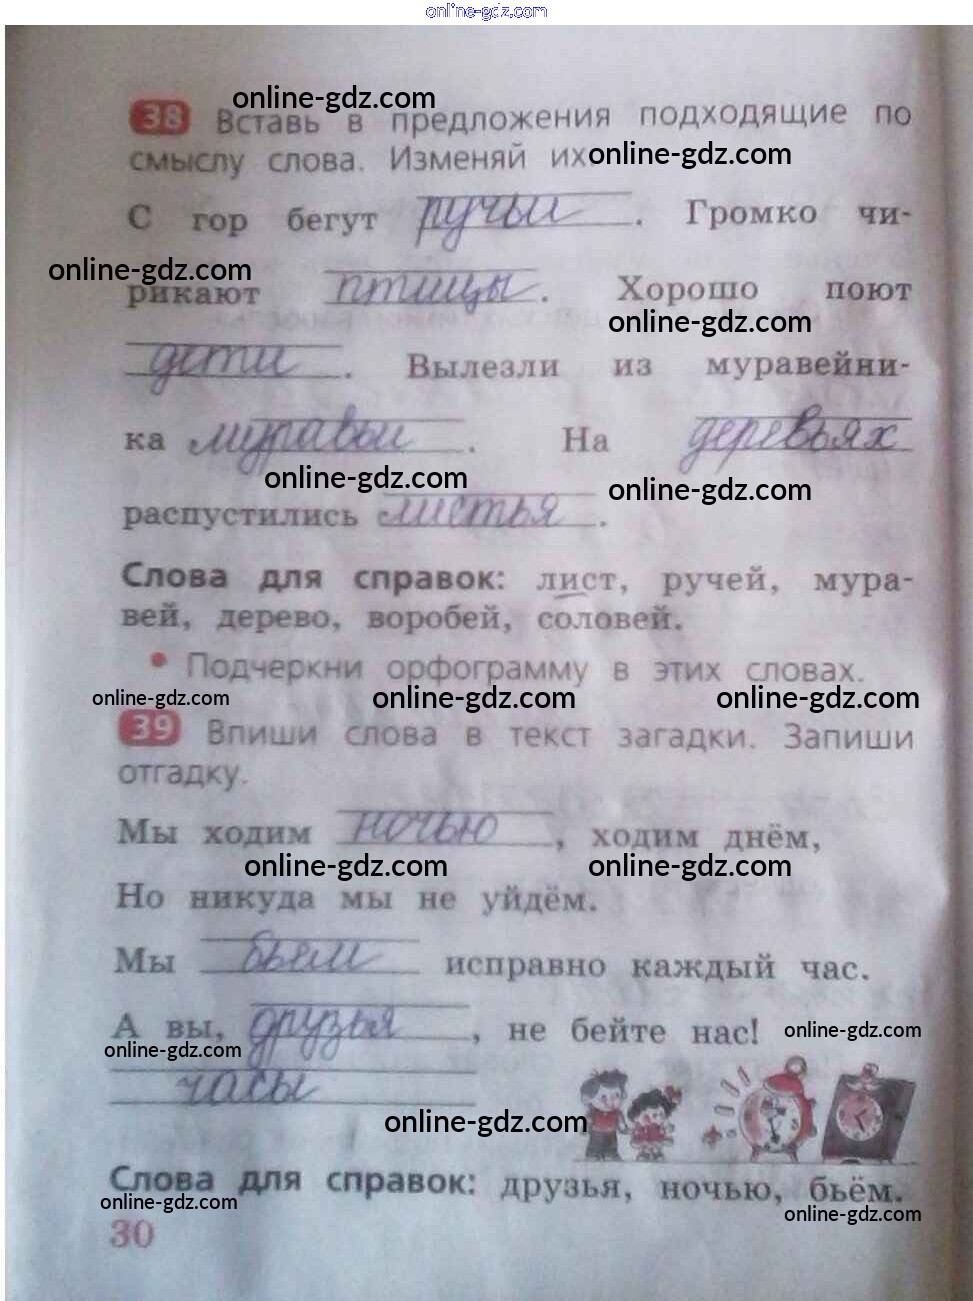 online-gdz.com
online-gdz.com
38 Вставь в предложения подходящие по
смыслу слова. Изменяй их online-gdz.com
С гор бегут ручьи . Громко чи-
online-gdz.com
рикают птицы . Хорошо поют
online-gdz.com
дети . Вылезли из муравейни-
ка муравьи . На деревьях
online-gdz.com online-gdz.com
распустились листья .
Слова для справок: лист, ручей, мура-
вей, дерево, воробей, соловей.
• Подчеркни орфограмму в этих словах.
online-gdz.com online-gdz.com online-gdz.com
39 Впиши слова в текст загадки. Запиши
отгадку.
Мы ходим ночью , ходим днём,
online-gdz.com online-gdz.com
Но никуда мы не уйдём.
Мы бьем исправно каждый час.
А вы, друзья , не бейте нас! online-gdz.com
online-gdz.com
часы
online-gdz.com
Слова для справок: друзья, ночью, бьём.
online-gdz.com online-gdz.com
30